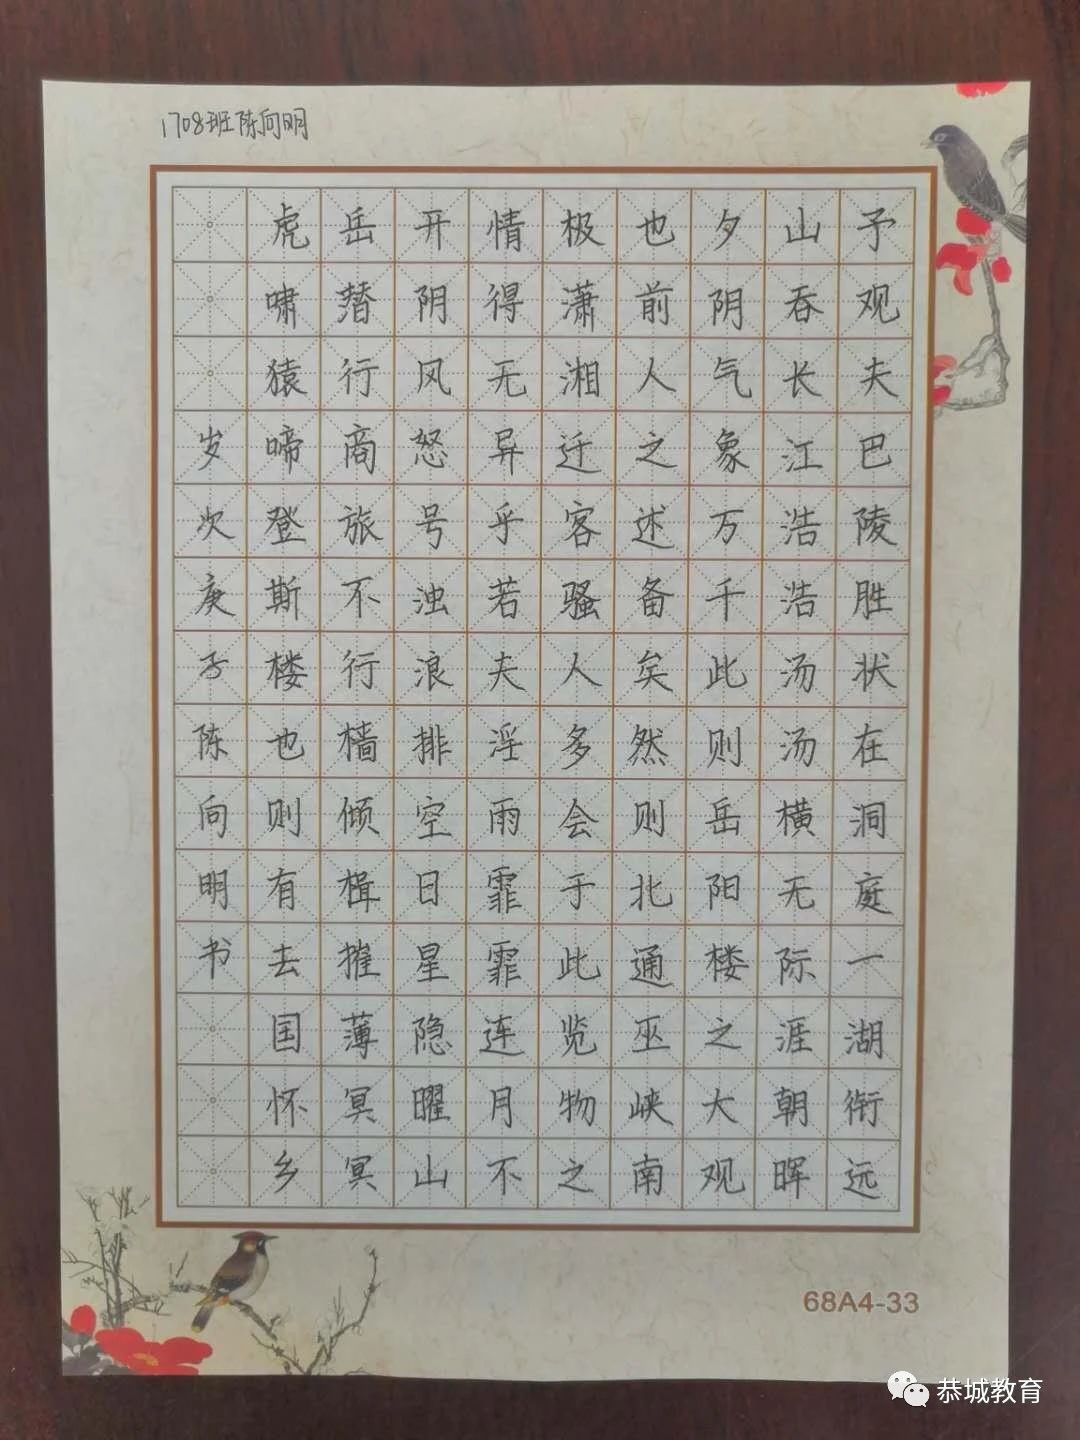 1708班陈向明
予观夫巴陵胜状在洞庭一湖衔远
山吞长江浩浩汤汤横无际涯朝晖
夕阴气象万千此则岳阳楼之大观
也前人之述备矣然则北通巫峡南
极潇湘迁客骚人多会于此览物之
情得无异乎若夫淫雨霏霏连月不
开阴风怒号浊浪排空日星隐曜山
岳替行商旅不行樯倾楫摧薄冥冥
虎啸猿啼登斯楼也则有去国怀乡
岁次庚子陈向明书
68A4-33
恭城教育